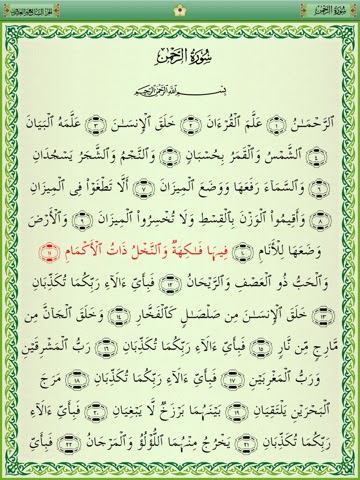 الجزء السابع والعشرون
سُورَةُ الرَّحْمَٰن
سُورَةُ الرَّحْمَٰن
بِسْمِ اللَّهِ الرَّحْمَٰنِ الرَّحِيمِ
الرَّحْمَـٰنُ ١ عَلَّمَ الْقُرْءَانَ ٢ خَلَقَ الْإِنسَـٰنَ ٣ عَلَّمَهُ الْبَيَانَ
٤ الشَّمْسُ وَالْقَمَرُ بِحُسْبَانٍ ٥ وَالنَّجْمُ وَالشَّجَرُ يَسْجُدَانِ
٦ وَالسَّمَآءَ رَفَعَهَا وَوَضَعَ الْمِيزَانَ ٧ أَلَّا تَطْغَوْا۟ فِى الْمِيزَانِ
٨ وَأَقِيمُوا۟ الْوَزْنَ بِالْقِسْطِ وَلَا تُخْسِرُوا۟ الْمِيزَانَ ٩ وَالْأَرْضَ
وَضَعَهَا لِلْأَنَامِ ١٠ فِيهَا فَـٰكِهَةٌ وَالنَّخْلُ ذَاتُ الْأَكْمَامِ ١١
وَالْحَبُّ ذُو الْعَصْفِ وَالرَّيْحَانُ ١٢ فَبِأَىِّ ءَالَآءِ رَبِّكُمَا تُكَذِّبَانِ
١٣ خَلَقَ الْإِنسَـٰنَ مِن صَلْصَـٰلٍ كَالْفَخَّارِ ١٤ وَخَلَقَ الْجَآنَّ مِن
مَّارِجٍ مِّن نَّارٍ ١٥ فَبِأَىِّ ءَالَآءِ رَبِّكُمَا تُكَذِّبَانِ ١٦ رَبُّ الْمَشْرِقَيْنِ
وَرَبُّ الْمَغْرِبَيْنِ ١٧ فَبِأَىِّ ءَالَآءِ رَبِّكُمَا تُكَذِّبَانِ ١٨ مَرَجَ
الْبَحْرَيْنِ يَلْتَقِيَانِ ١٩ بَيْنَهُمَا بَرْزَخٌ لَّا يَبْغِيَانِ ٢٠ فَبِأَىِّ ءَالَآءِ
رَبِّكُمَا تُكَذِّبَانِ ٢١ يَخْرُجُ مِنْهُمَا اللُّؤْلُؤُ وَالْمَرْجَانُ ٢٢ فَبِأَىِّ